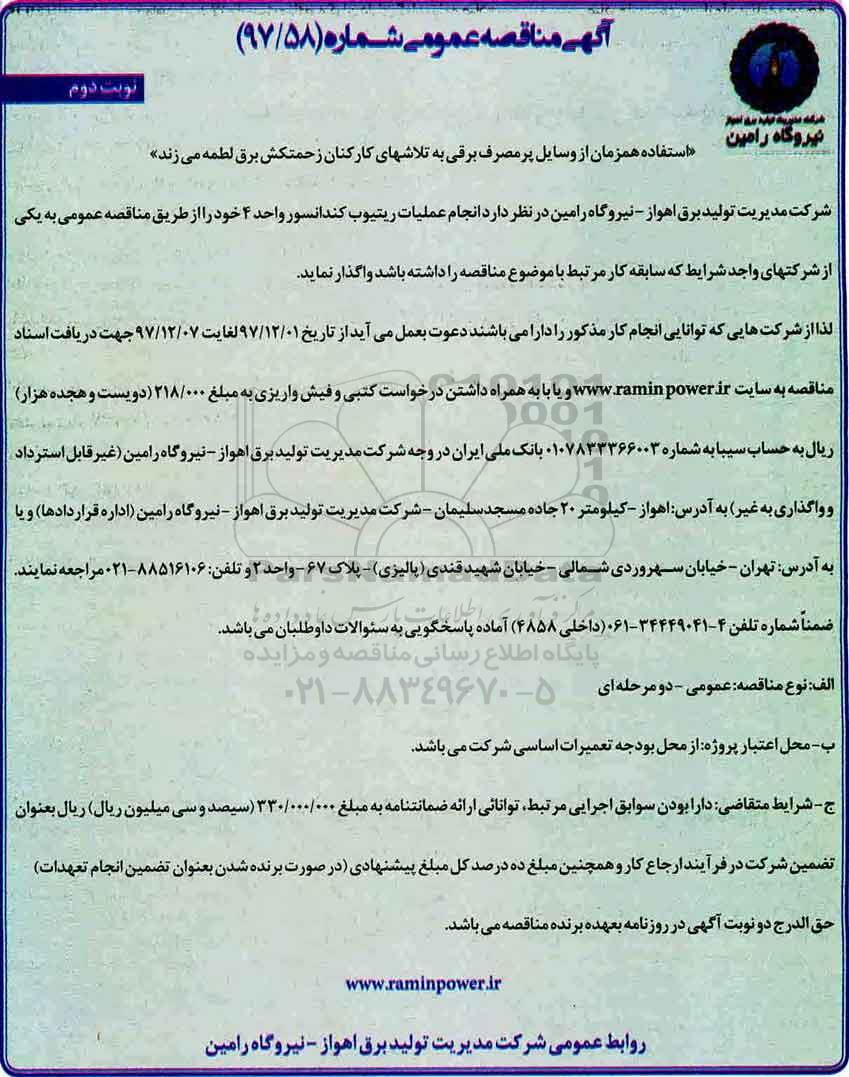 آگهی مناقصه عمومی شماره (۹۷/۵۸)
نوبت دوم
شرکت مدیریت تولید برق اهواز
نیروگاه رامین
«استفاده همزمان از وسایل پرمصرف برقی به تلاشهای کارکنان زحمتکش برق لطمه می زند»
شرکت مدیریت تولید برق اهواز - نیروگاه رامین در نظر دارد انجام عملیات ریتیوب کندانسور واحد ۴ خود را از طریق مناقصه عمومی به یکی
از شرکتهای واجد شرایط که سابقه کار مرتبط با موضوع مناقصه را داشته باشد واگذار نماید.
لذا از شرکت هایی که توانایی انجام کار مذکور را دارا می باشند دعوت بعمل می آید از تاریخ ۹۷/۱۲/۰۱ لغایت ۹۷/۱۲/۰۷ جهت دریافت اسناد
مناقصه به سایت www.raminpower.ir و یا با به همراه داشتن درخواست کتبی و فیش واریزی به مبلغ ۲۱۸/۰۰۰ (دویست و هجده هزار)
ریال به حساب سیبا به شماره ۰۱۰۷۸۳۳۳۶۶۰۰۳ بانک ملی ایران در وجه شرکت مدیریت تولید برق اهواز - نیروگاه رامین (غیر قابل استرداد
و واگذاری به غیر) به آدرس: اهواز - کیلومتر ۲۰ جاده مسجدسلیمان - شرکت مدیریت تولید برق اهواز - نیروگاه رامین (اداره قراردادها) و یا
به آدرس: تهران - خیابان سهروردی شمالی - خیابان شهید قندی (پالیزی) - پلاک ۶۷ - واحد ۲ و تلفن: ۸۸۵۱۶۱۰۶-۰۲۱ مراجعه نمایند.
ضمناً شماره تلفن ۴-۳۴۴۴۹۰۴۱-۰۶۱ (داخلی ۴۸۵۸) آماده پاسخگویی به سئوالات داوطلبان می باشد.
الف: نوع مناقصه: عمومی - دو مرحله ای
ب- محل اعتبار پروژه: از محل بودجه تعمیرات اساسی شرکت می باشد.
ج- شرایط متقاضی: دارا بودن سوابق اجرایی مرتبط، توانائی ارائه ضمانتنامه به مبلغ ۳۳۰/۰۰۰/۰۰۰ (سیصد و سی میلیون ریال) ریال بعنوان
تضمین شرکت در فرآیند ارجاع کار و همچنین مبلغ ده درصد کل مبلغ پیشنهادی (در صورت برنده شدن بعنوان تضمین انجام تعهدات)
حق الدرج دو نوبت آگهی در روزنامه بعهده برنده مناقصه می باشد.
www.raminpower.ir
روابط عمومی شرکت مدیریت تولید برق اهواز - نیروگاه رامین
ParsNamadData
مرکز فرآوری اطلاعات پارس نماد داده ها
پایگاه اطلاع رسانی مناقصه و مزایده
۰۲۱-۸۸۳۴۹۶۷۰-۵